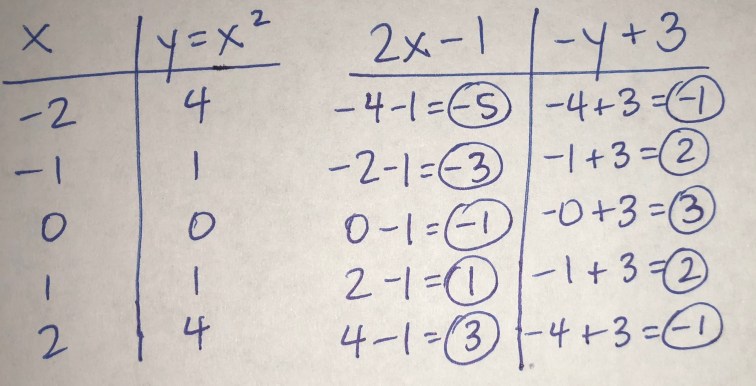 x y=x² 2x-1 -y+3
-2 4 -4-1=-5 -4+3=-1
-1 1 -2-1=-3 -1+3=2
0 0 0-1=-1 -0+3=3
1 1 2-1=1 -1+3=2
2 4 4-1=3 -4+3=-1